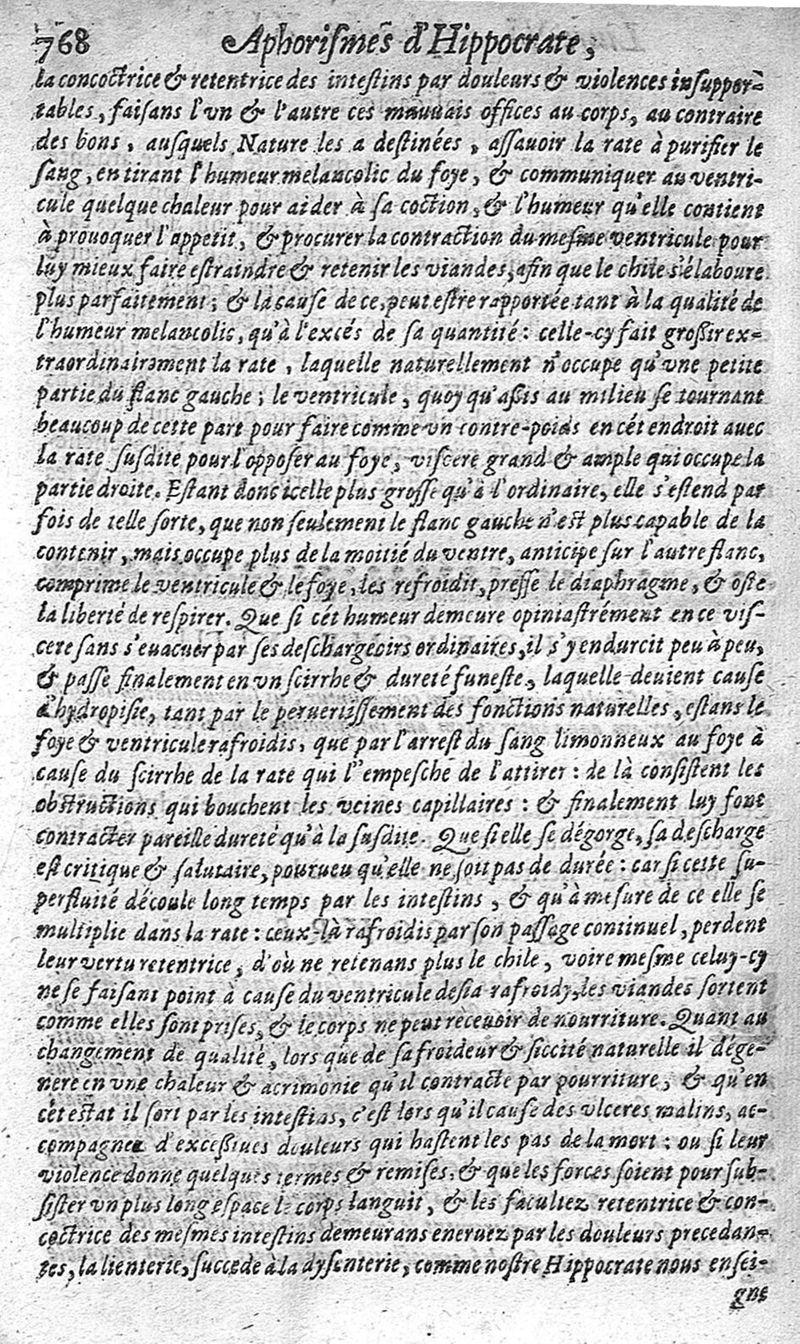 768 Aphorismes d'Hippocrate,
la concoctrice & retentrice des intestins par douleurs & violences insuppor-
tables, faisans l'vn & l'autre ces mauuais offices au corps, au contraire
des bons, ausquels Nature les a destinées, assauoir la rate à purifier le
sang, en tirant l'humeur melancolic du foye, & communiquer au ventri-
cule quelque chaleur pour aider à sa coction, & l'humeur qu'elle contient
à prouoquer l'appetit, & procurer la contraction du mesme ventricule pour
luy mieux faire estraindre & retenir les viandes, afin que le chile s'élaboure
plus parfaitement; & la cause de ce, peut estre rapportée tant à la qualité de
l'humeur melancolic, qu'à l'excés de sa quantité: celle-cy fait grossir ex-
traordinairement la rate, laquelle naturellement n'occupe qu'vne petite
partie du flanc gauche; le ventricule, quoy qu'assis au milieu se tournant
beaucoup de cette part pour faire comme vn contre-poids en cét endroit auec
la rate susdite pour l'opposer au foye, viscere grand & ample qui occupe la
partie droite. Estant donc icelle plus grosse qu'à l'ordinaire, elle s'estend par
fois de telle sorte, que non seulement le flanc gauche n'est plus capable de la
contenir, mais occupe plus de la moitié du ventre, anticipe sur l'autre flanc,
comprime le ventricule & le foye, les refroidit, presse le diaphragme, & oste
la liberté de respirer. Que si cét humeur demeure opiniastrément en ce vis-
cere sans s'euacuer par ses deschargeoirs ordinaires, il s'y endurcit peu à peu,
& passe finalement en vn scirrhe & dureté funeste, laquelle deuient cause
d'hydropisie, tant par le peruertissement des fonctions naturelles, estans le
foye & ventricule rafroidis, que par l'arrest du sang limonneux au foye à
cause du scirrhe de la rate qui l'empesche de l'attirer: de là consistent les
obstructions qui bouchent les veines capillaires: & finalement luy font
contracter pareille dureté qu'à la susdite. Que si elle se dégorge, sa descharge
est critique & salutaire, pourueu qu'elle ne soit pas de durée: car si cette su-
perfluité découle long temps par les intestins, & qu'à mesure de ce elle se
multiplie dans la rate: ceux-là rafroidis par son passage continuel, perdent
leur vertu retentrice, d'où ne retenans plus le chile, voire mesme celuy-cy
ne se faisant point à cause du ventricule desia rafroidy, les viandes sortent
comme elles sont prises, & le corps ne peut receuoir de nourriture. Quant au
changement de qualité, lors que de sa froideur & siccité naturelle il dége-
nere en vne chaleur & acrimonie qu'il contracte par pourriture, & qu'en
cét estat il sort par les intestins, c'est lors qu'il cause des vlceres malins, ac-
compagnez d'excessiues douleurs qui hastent les pas de la mort: ou si leur
violence donne quelques termes & remises, & que les forces soient pour sub-
sister vn plus long espace le corps languit, & les facultez retentrice & con-
coctrice des mesmes intestins demeurans eneruez par les douleurs precedan-
tes, la lienterie, succede à la dysenterie, comme nostre Hippocrate nous ensei-
gne